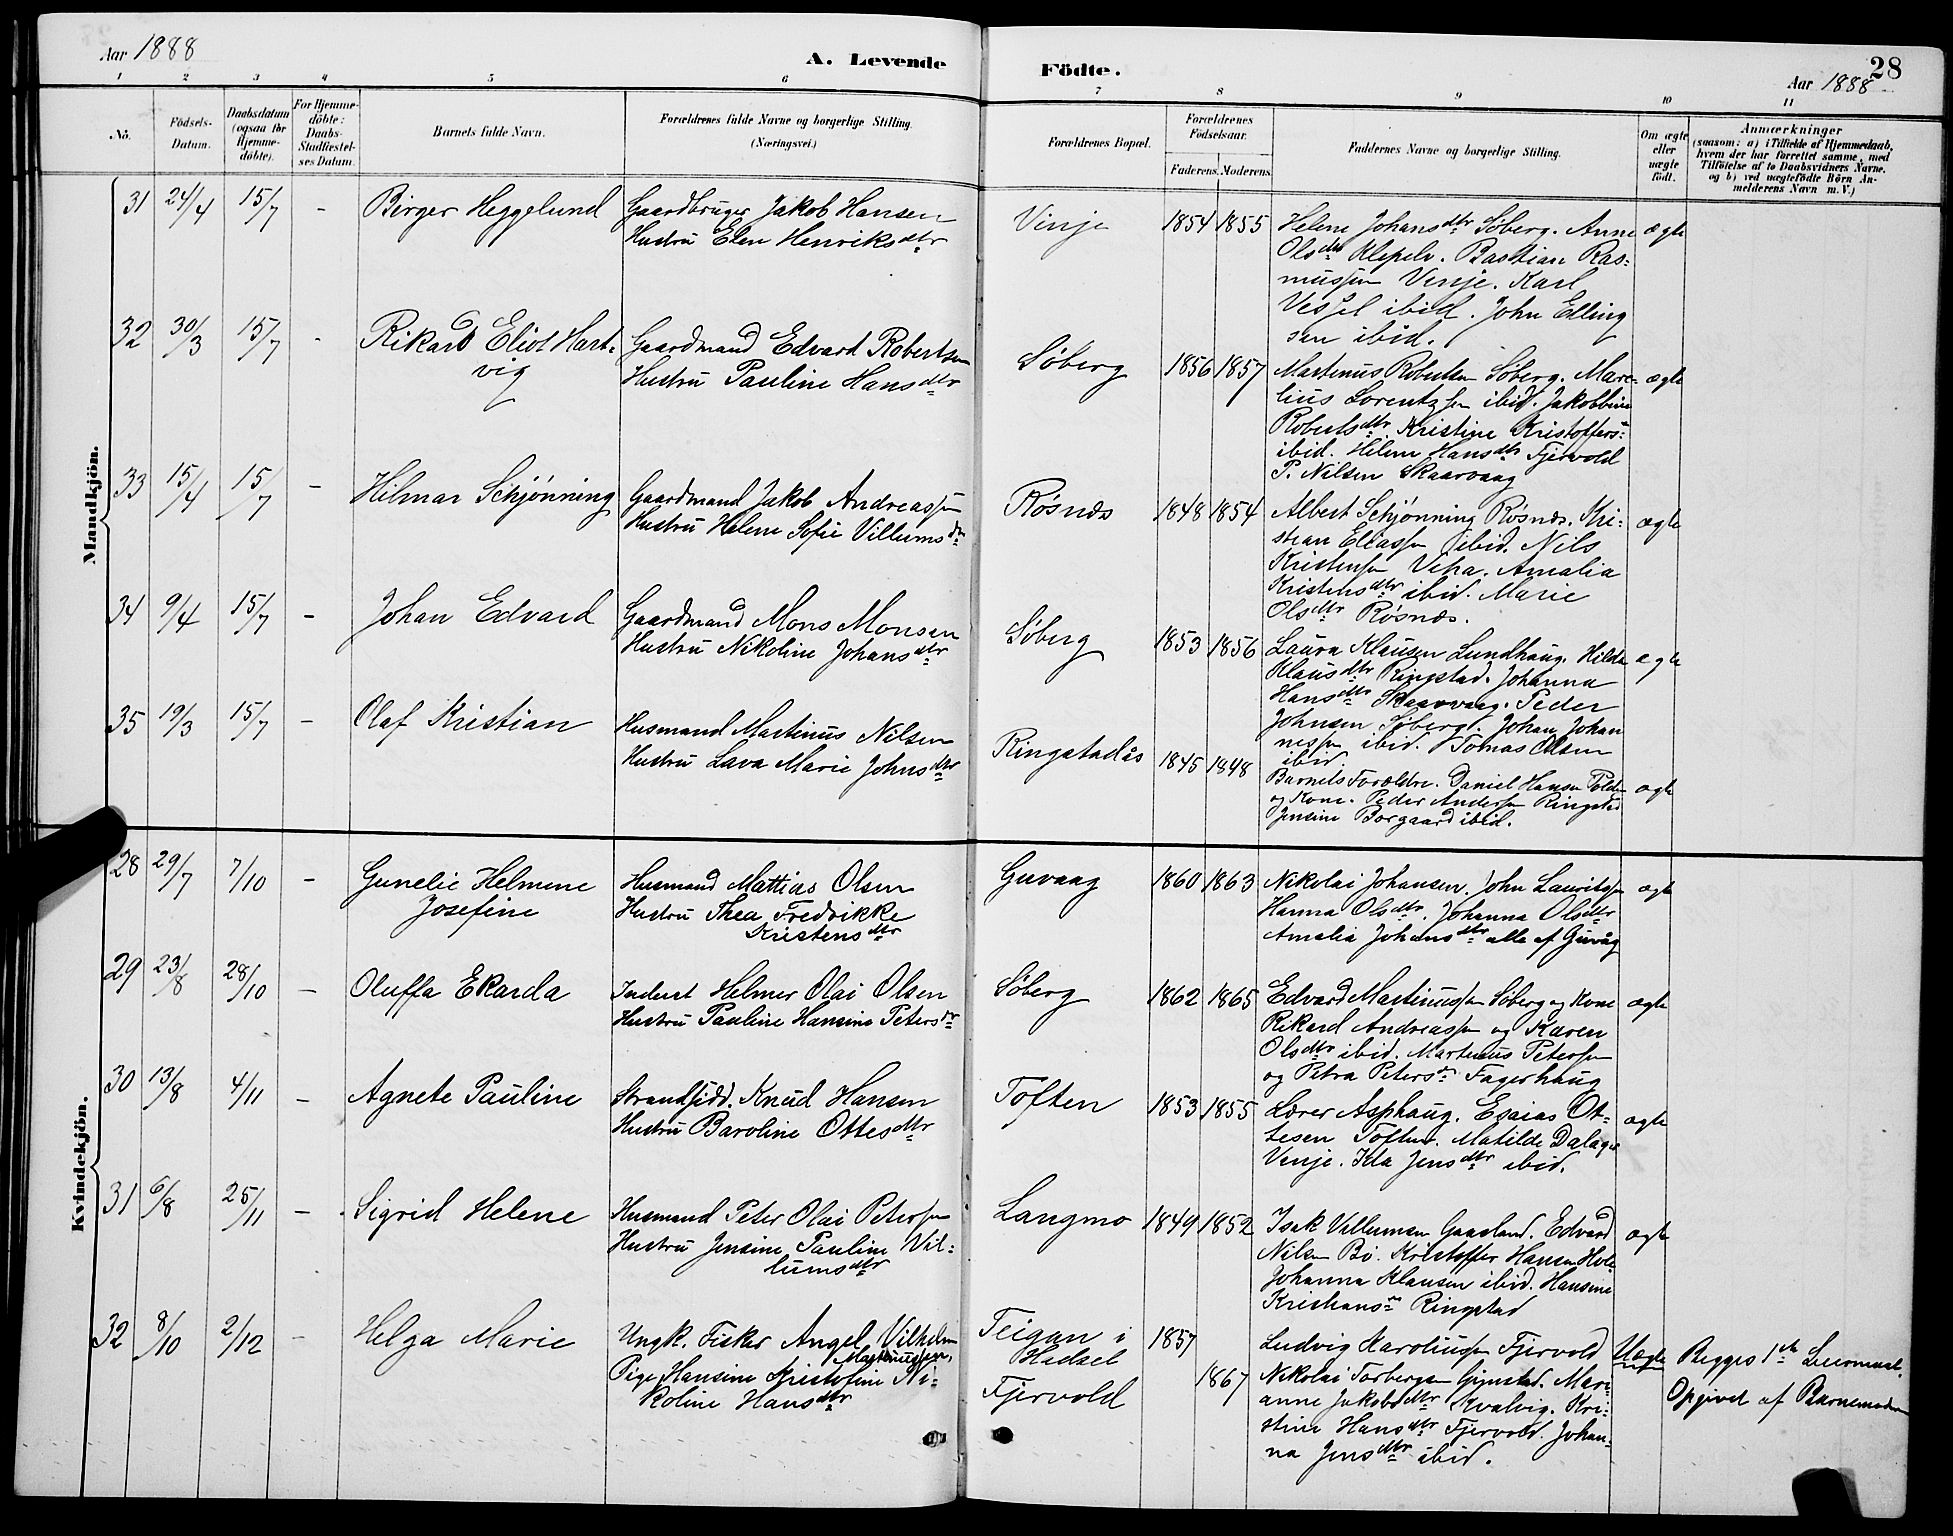 Aar 1888
A. Levende Födte.
28
Aar 1888
1 2 3 4 5 6 7 8 9 10 11
No.
Födsels-
Datum.
Daabsdatum
(ogsaa for
Hjemme-
döbte).
For Hjemme-
döbte:
Daabs-
Stadfæstel-
ses Datum.
Barnets fulde Navn.
Forældrenes fulde Navne og borgerlige Stilling.
(Næringsvei.)
Forældrenes Bopæl.
Forældrenes
Födselsaar.
Faderens. Moderens.
Faddernes Navne og borgerlige Stilling.
Om ægte
eller
uægte
födt.
Anmærkninger
(saasom: a) i Tilfælde af Hjemmedaab,
hvem der har forrettet samme, med
Tilföielse af to Daabsvidners Navne,
og b) ved uægtefödte Börn An-
melderens Navn m. V.)
Mandkjön.
31 24/4 15/7 - Birger Heggelund
Gaardbruger Jakob Hansen
Hustru Elen Henriksdtr
Vinje 1854 1855
Helene Johansdtr Søberg. Anne
Olsdtr Klepelv. Bastian Ras-
mussen Vinje. Karl
Vessel ibid. John Elling
sen ibid.
ægte
32 30/3 15/7 - Rikard Eliot Hart-
vig
Gaardmand Edvard Robertsen
Hustru Pauline Hansdtr
Søberg 1856 1857
Martinus Robertsen Søberg. Mare-
lius Lorentzsen ibid. Jakobbine
Robertsdtr Kristine Kristoffers-
ibid. Helene Hansdtr Fjervold
P. Nilsen Skaarvaag
ægte
33 15/4 15/7 - Hilmar Schjønning
Gaardmand Jakob Andreassen
Hustru Helene Sofie Villumsdtr
Røsnæs 1848 1854
Albert Schjønning Røsnæs. Kri-
stian Eliassen ibid. Nils
Kristensen Veha. Amalia
Kristensdtr ibid. Marie
Olsdtr Røsnæs.
ægte
34 9/4 15/7 - Johan Edvard
Gaardmand Mons Monsen
Hustru Nikoline Johansdtr
Søberg 1853 1856
Laura Klausen Lundhaug. Hilda
Klausdtr Ringstad. Johanna
Hansdtr Skaarvaag. Peder
Johnsen Søberg. Johan Johan
nessen ibid. Tomas Olsen
ibid.
ægte
35 19/3 15/7 - Olaf Kristian
Husmand Martinus Nilsen
Hustru Lava Marie Johnsdtr
Ringstadås 1845 1848
Barnets Forældre. Daniel Hansen Polden
og Kone. Peder Andersen Ringstad
Jensine Borgaard ibid.
ægte
Kvindekjön.
28 29/7 7/10 - Gunelie Helmine
Josefine
Husmand Mattias Olsen
Hustru Thea Fredrikke
Kristensdtr
Guvaag 1860 1863
Nikolai Johansen. John Lauritsen
Hanna Olsdtr. Johanna Olsdtr
Amalia Johansdtr alle af Guvåg
ægte
29 23/8 28/10 - Oluffa Ekarda
Inderst Helmer Olai Olsen
Hustru Pauline Hansine Petersdtr
Søberg 1862 1865
Edvard Martinussen Søberg og Kone
Rikard Andreassen og Karen
Olsdtr ibid. Martinus Petersen
og Petra Petersdtr Fagerhaug
ægte
30 13/8 4/11 - Agnete Pauline
Strandsidd. Knud Hansen
Hustru Baroline Ottesdtr
Toften 1853 1855
Lærer Asphaug. Esaias Ot-
tesen Toften. Matilde Dalager
Vinje. Ida Jensdtr ibid.
ægte
31 6/8 25/11 - Sigrid Helene
Husmand Peter Olai Petersen
Hustru Jensine Pauline Wil-
lumsdtr
Langmo 1849 1852
Isak Villumsen Gaasland. Edvard
Nilsen Bø. Kristoffer Hansen
Johanna Klausen ibid. Hansine
Kristiansdtr Ringstad
ægte
32 8/10 2/12 - Helga Marie
Ungk. Fisker Angel Vilhelm
Martinussen,
Pige Hansine Kristofine Ni-
koline Hansdtr
Teigan i
Hadsel
Fjervold
1857
1867
Ludvig Karoliussen Fjervold
Nikolai Torbergsen Gjinstad. Mari-
anne Jakobsdtr Kvalvig. Kri-
stine Hansdtr Fjervold. Johan-
na Jensdtr ibid.
Uægte
Begges 1ste Leiermaal.
Opgivet af Barnemoderen